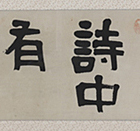 詩中
有